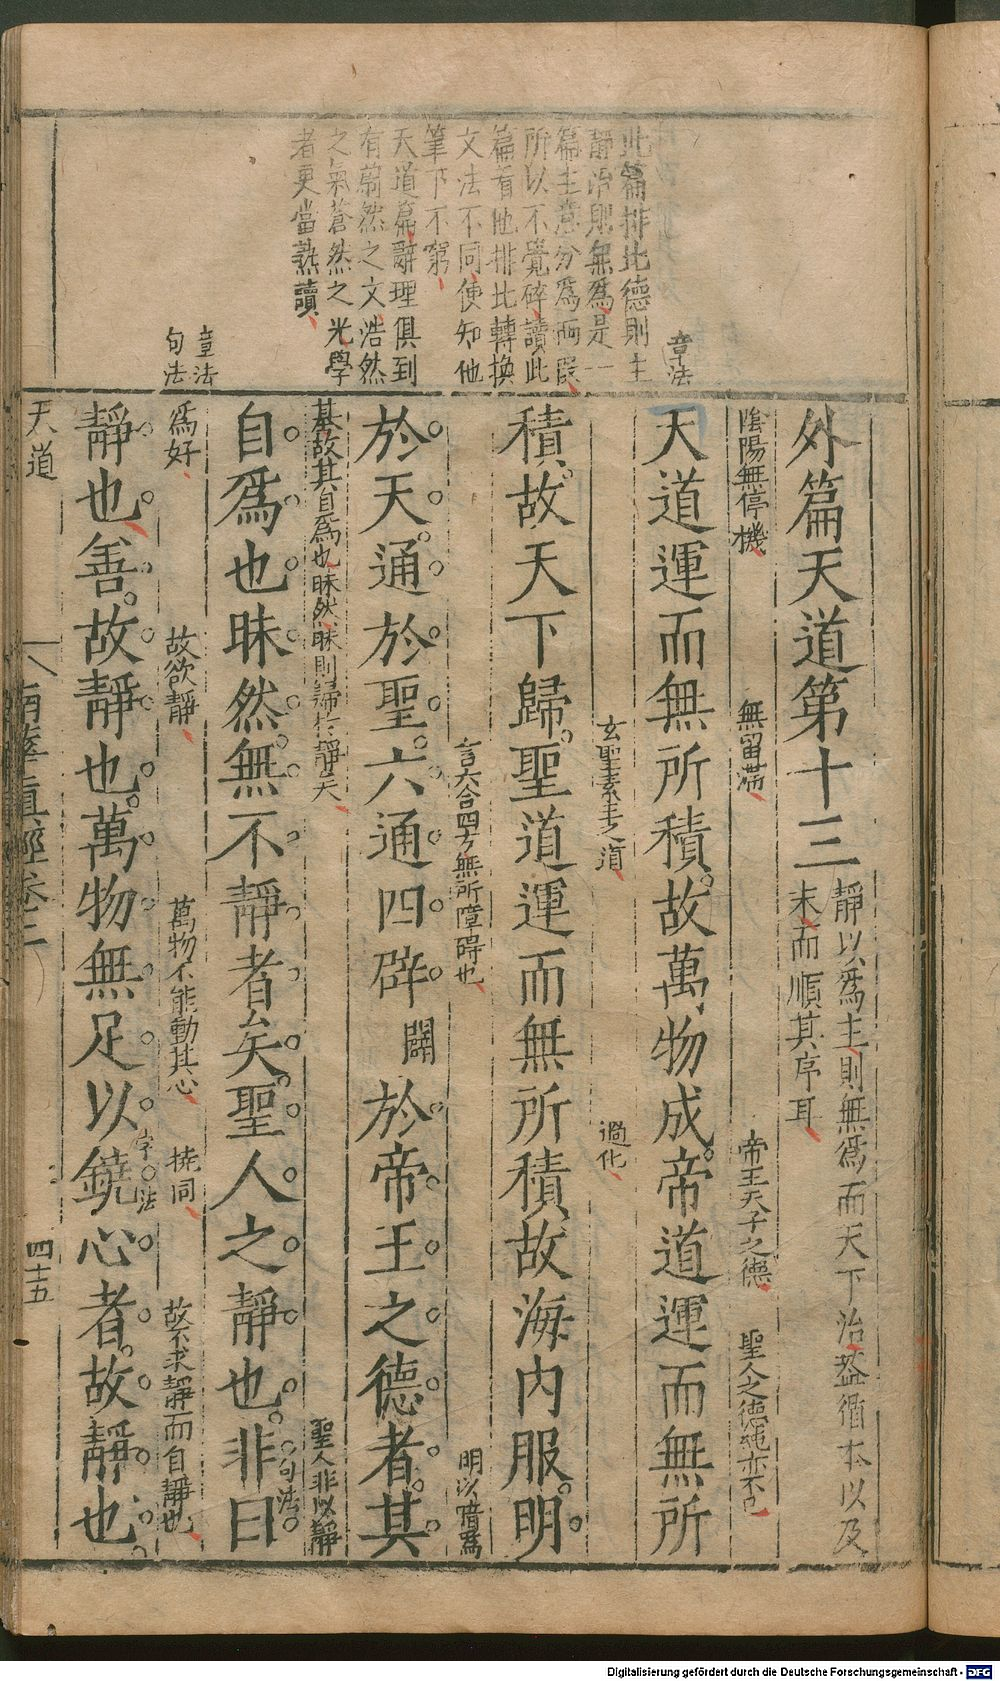 此篇排比德則主
靜治則無爲是一
篇主意分爲兩段
所以不覺碎讀此
篇看他排比轉換
文法不同使知他
筆下不窮
天道篇辭理俱到
有蔚然之文浩然
之氣蒼然之光學
者更當熟讀
章法
章法
句法
外篇天道第十三
靜以爲主則無爲而天下治蓋循本以及
末而順其序耳
陰陽無停機
無留滯
帝王天子之德
聖人之德純亦不已
天道運而無所積故萬物成帝道運而無所
玄聖素王之道
過化
積故天下歸聖道運而無所積故海内服明
言六合四方無所障碍也
明以暗爲
於天通於聖六通四辟
闢
於帝王之德者其
基故其自爲也昧然昧則歸於靜矣
聖人非以靜
自爲也昧然無不靜者矣聖人之靜也非曰
句法
爲好
故欲靜
萬物不能動其心
撓同
故不求靜而自靜也
靜也善故靜也萬物無足以鐃心者故靜也
字法
天道
南華真經卷三
四十五
Digitalisierung gefördert durch die Deutsche Forschungsgemeinschaft - DFG